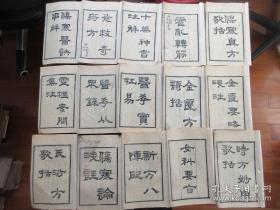 傷寒醫訣
串解
急救奇
痧方
十藥神書
註解
霍亂轉筋
傷寒真方
歌括
靈樞素問
集注
醫學從
眾錄
醫學實
在易
金匱方
歌括
金匱要略
淺註
長沙方
歌括
傷寒論
淺註
新方八
陣砭
女科要旨
時方妙
歌括